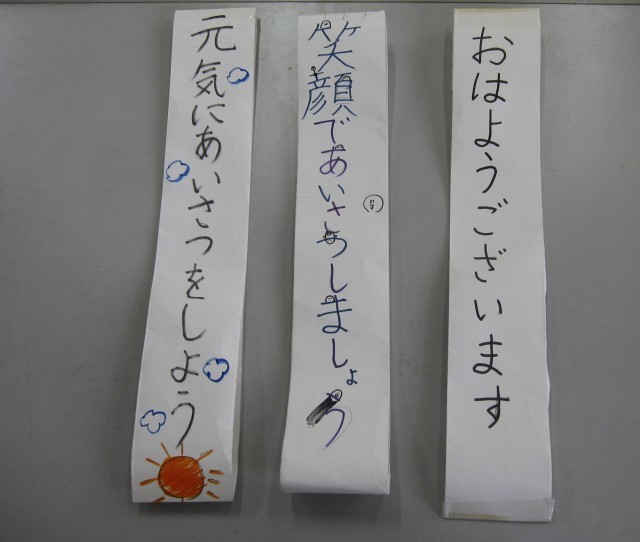 おはようございます
笑顔であいさつしましょう
元気にあいさつをしよう